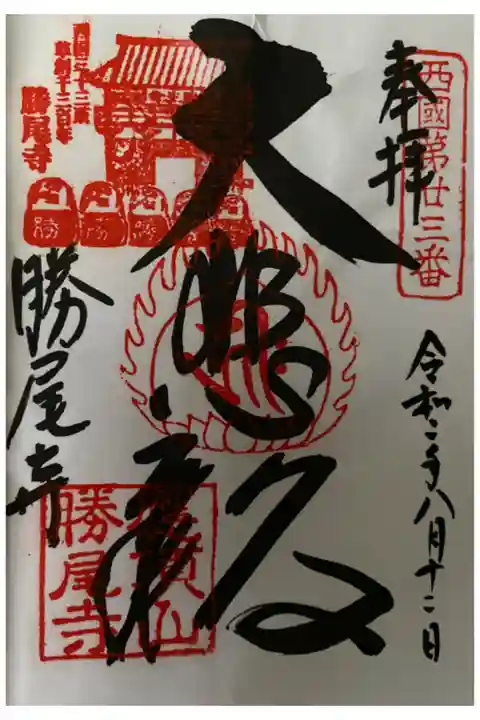 奉拝
西國第廿三番
令和二年八月十二日
大悲殿
西国二十三番
草創千三百年
勝尾寺
勝
勝
勝
勝尾寺
應頂山
勝尾寺